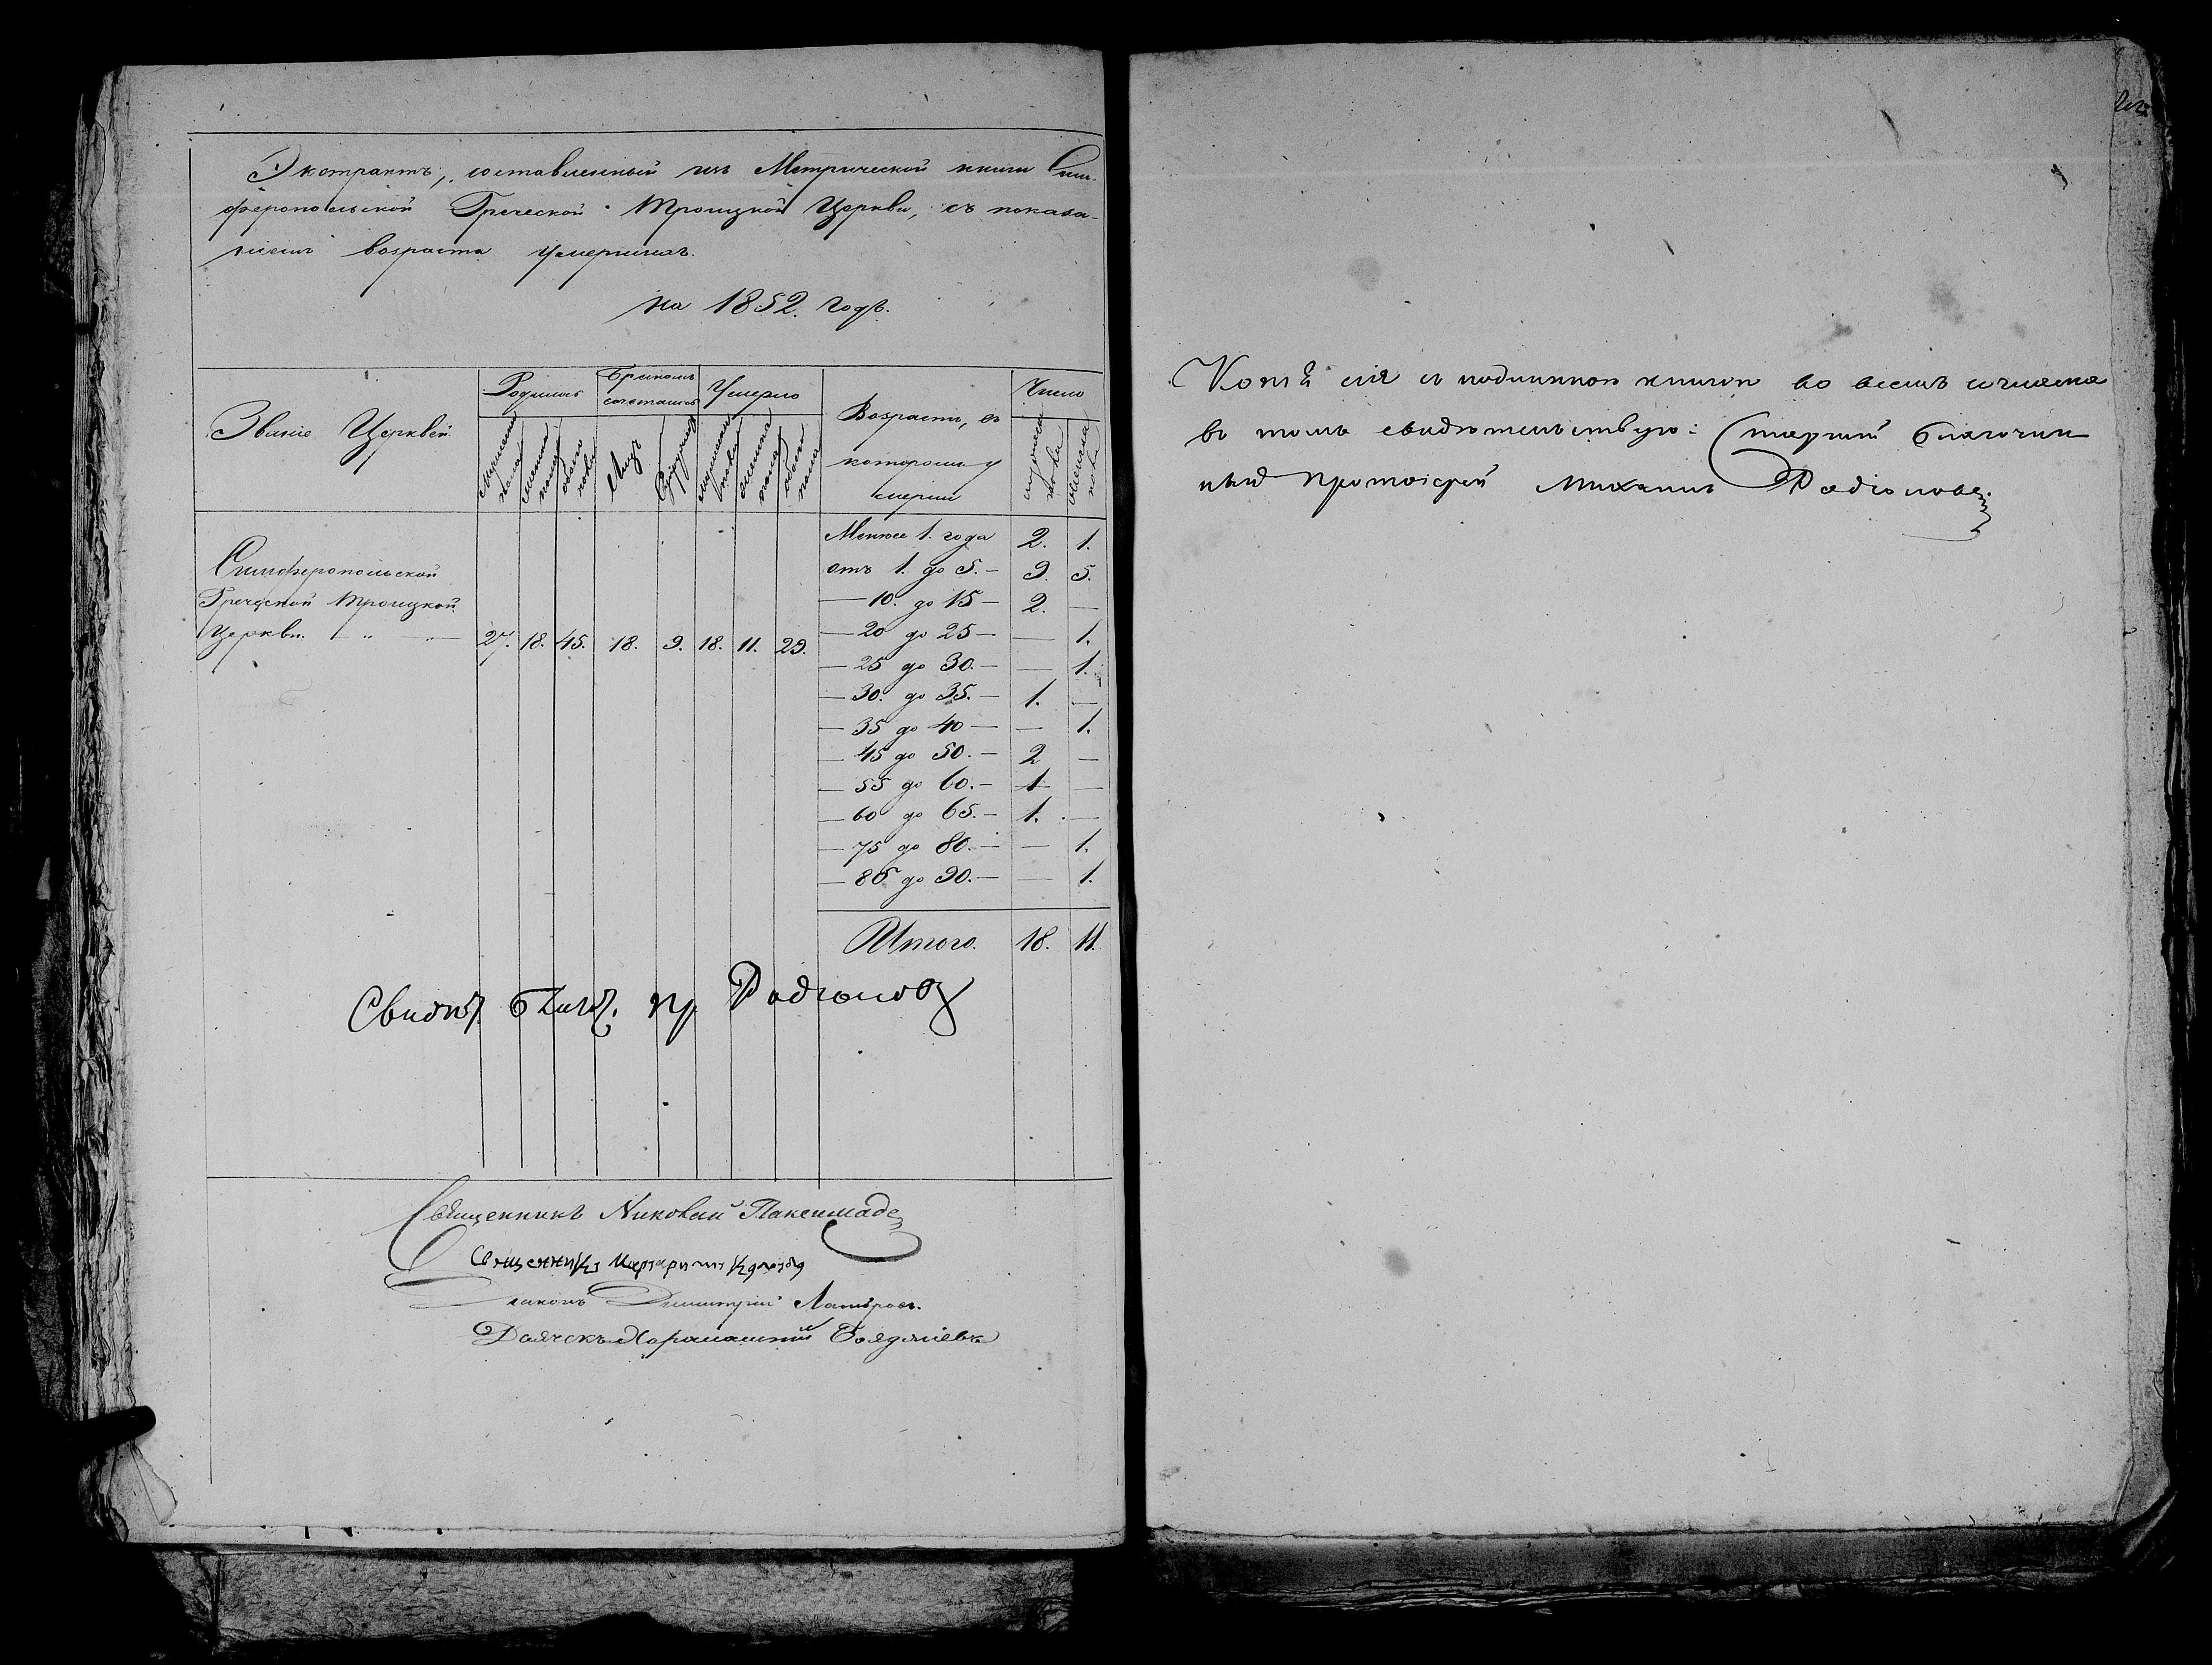 Экстрактъ, составленный изъ Метрической книги Сим-
феропольской Греческой Троицкой Церкви, съ показа-
ніемъ возраста умершихъ.
на 1852. годъ.
Званіе Церквей.
Родилось
Бракомъ
сочеталось
Умерло
Возрастъ, въ
которомъ у
мерли
Число
мужеска
пола
женска
пола
обоего
пола
Лицъ
мужеска
пола
женска
пола
обоего
пола
мужеска
пола
женска
пола
Симферопольской
Греческой Троицкой
Церкви. 27. 18. 45. 18. 9. 18. 11. 29.
Менѣе 1. года 2. 1.
отъ 1. до 5. — 9. 5.
— 10. до 15 — 2. —
— 20 до 25 — — 1.
— 25 до 30. — — 1.
— 30. до 35. — 1. —
— 35 до 40 — — 1.
— 45 до 50. — 2 —
— 55 до 60. — 1 —
— 60 до 65. — 1. —
— 75 до 80. — — 1.
— 85 до 90. — — 1.
Итого. 18. 11.
Свидѣт. Благоч. Пр. Родіоновъ
Священникъ Николай Паксимаде
Священникъ Маргаритъ
Діаконъ Димитрій
Дьячекъ Харалампій
Копія сія съ подлинною книгою во всемъ согласна
въ томъ свидѣтельствую: Старшій Благочин-
ный Протоіерей Михаилъ Родіоновъ.